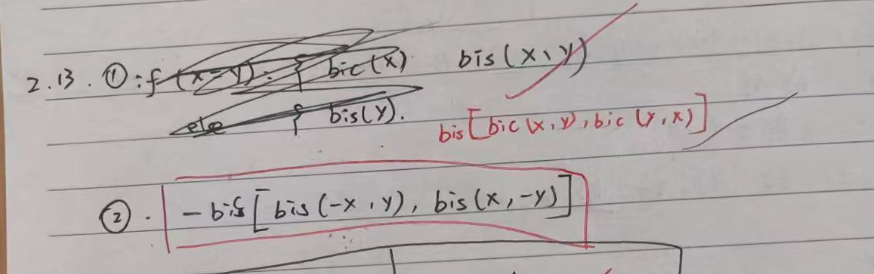 2.13. ①: if (x-y): { bic(x) bis(x,y)
else { bis(y).
bis[bic(x,y), bic(y,x)]
②. -bis[bis(-x,y), bis(x,-y)]